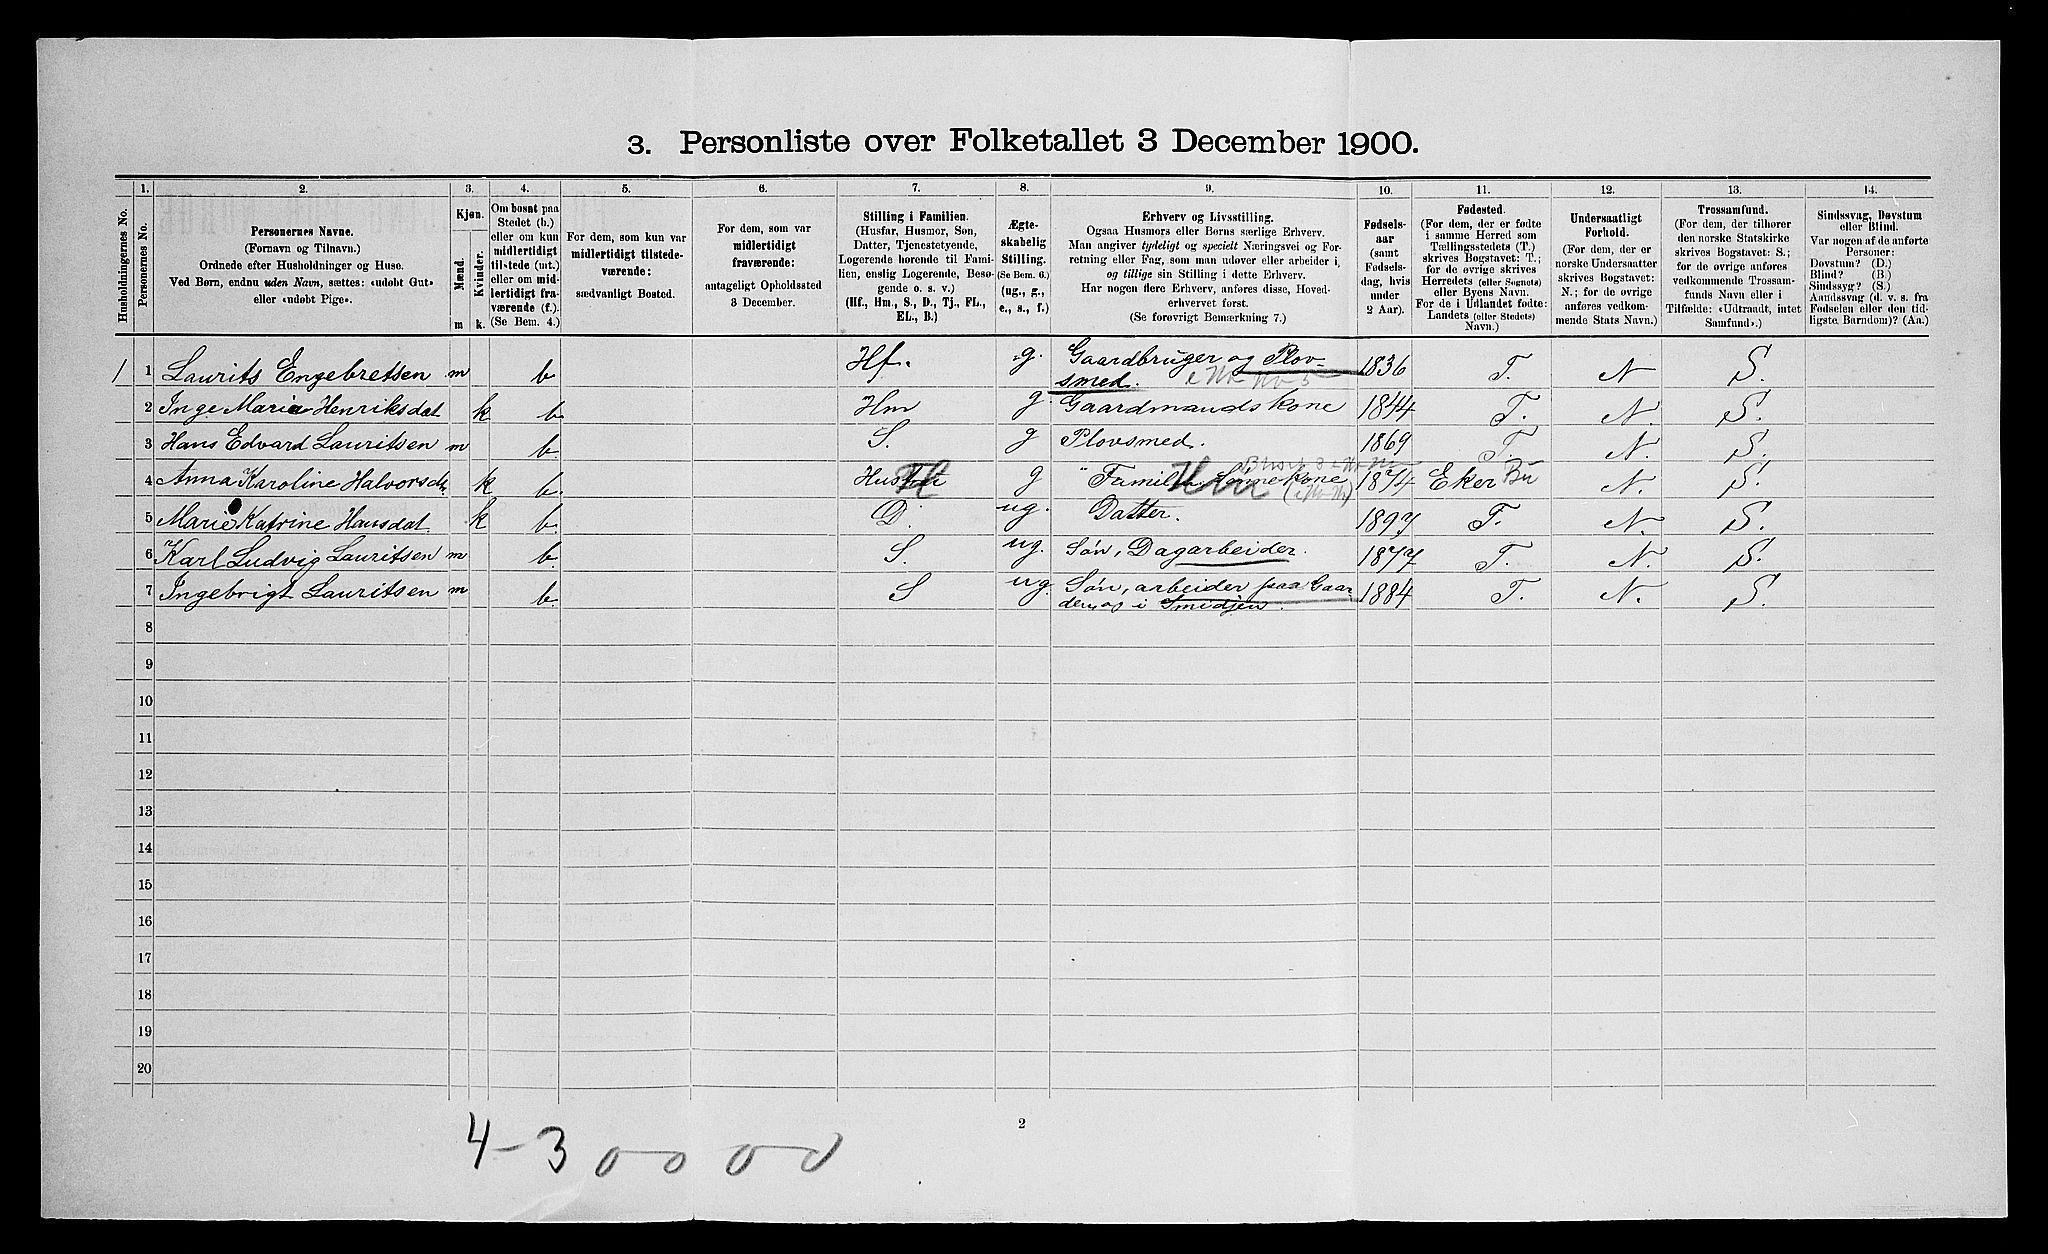 3. Personliste over Folketallet 3 December 1900.
1. 2. 3. 4. 5. 6. 7. 8. 9. 10. 11. 12. 13. 14.
Husholdningernes No.
Personernes No.
Personernes Navne.
(Fornavn og Tilnavn.)
Ordnede efter Husholdninger og Huse.
Ved Børn, endnu uden Navn, sættes: «udøbt Gut»
eller «udøbt Pige».
Kjøn.
Mænd. Kvinder.
m k.
Om bosat paa
Stedet (b.)
eller om kun
midlertidigt
tilstede (mt.)
eller om mid-
lertidigt fra-
værende (f.).
(Se Bem. 4.)
For dem, som kun var
midlertidigt tilstede-
værende:
sædvanligt Bosted.
For dem, som var
midlertidigt
fraværende:
antageligt Opholdssted
3 December.
Stilling i Familien.
(Husfar, Husmor, Søn,
Datter, Tjenestetyende,
Logerende hørende til Fami-
lien, enslig Logerende, Besø-
gende o. s. v.)
(Hf., Hm., S., D., Tj., FL.,
EL., B.)
Ægte-
skabelig
Stilling.
(Se Bem. 6.)
(ug., g.,
e., s., f.)
Erhverv og Livsstilling.
Ogsaa Husmors eller Børns særlige Erhverv.
Man angiver tydeligt og specielt Næringsvei og For-
retning eller Fag, som man udøver eller arbeider i,
og tillige sin Stilling i dette Erhverv.
Har nogen flere Erhverv, anføres disse, Hoved-
erhvervet først.
(Se forøvrigt Bemærkning 7.)
Fødsels-
aar
(samt
Fødsels-
dag, hvis
under
2 Aar).
Fødested.
(For dem, der er fødte
i samme Herred som
Tællingsstedets (T.)
skrives Bogstavet: T.;
for de øvrige skrives
Herredets (eller Sognets)
eller Byens Navn.
For de i Udlandet fødte:
Landets (eller Stedets)
Navn.)
Undersaatligt
Forhold.
(For dem, der er
norske Undersaatter
skrives Bogstavet:
N.; for de øvrige
anføres vedkom-
mende Stats Navn.)
Trossamfund.
(For dem, der tilhører
den norske Statskirke
skrives Bogstavet: S.;
for de øvrige anføres
vedkommende Trossam-
funds Navn eller i
Tilfælde: «Udtraadt, intet
Samfund».)
Sindssvag, Døvstum
eller Blind.
Var nogen af de anførte
Personer:
Døvstum? (D.)
Blind? (B.)
Sindssyg? (S.)
Aandssvag (d. v. s. fra
Fødselen eller den tid-
ligste Barndom)? (Aa.)
1 1 Laurits Engebretsen m b Hf. g. Gaardbruger og Plov- 1836 T. N S.
smed.
2 Inge Maria Henriksdat k b Hm g. Gaardmandskone 1844 T. N. S.
3 Hans Edvard Lauritsen m b. S. g Plovsmed. 1869 T. N. S.
4 Anna Karoline Halvorsdt. k b. Fl g " Familie Sønnekone 1874 Eker Bu N. S.
5 Marie Katrine Hansdat k b. D. ug. Datter. 1897 T. N. S.
6 Karl Ludvig Lauritsen m b. S. ug. Søn, Dagarbeider. 1877 T. N. S.
7 Ingebrigt Lauritsen m b. S ug. Søn, arbeider paa Gaar- 1884 T. N. S.
den, og i Smidjen.
8
9
10
11
12
13
14
15
16
17
18
19
20
2
4-3 0 0 0 0